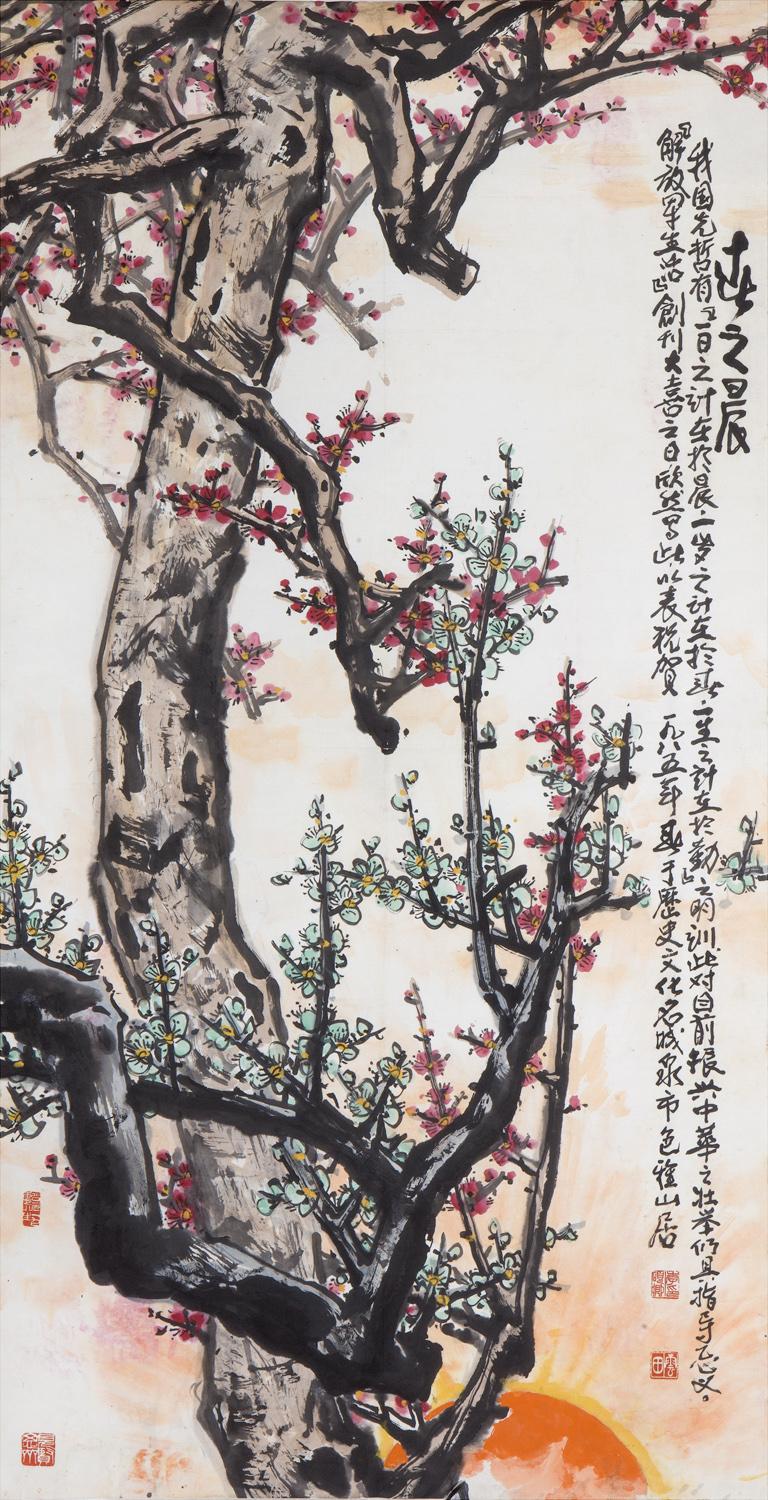 春之晨
我国先哲有『一日之计在於晨，一岁之计在於春，一生之计在於勤』之明训，此对目前振兴中华之壮举仍具指导意义。
『解放军生活』創刊大喜之日欣然写此以表祝贺 一九八五年春于歷史文化名城泉市 山居
雲田